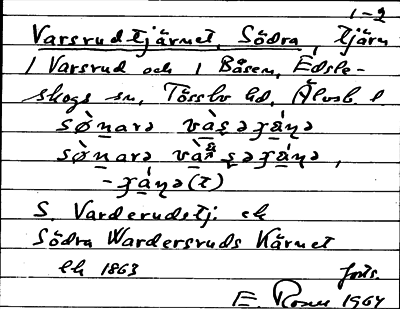 1-2
Varsrudtjärnet, Södra, tjärn
i Varsrud och i Båsen, Edsle-
skogs sn, Tösslv hd, Älvsb l
sø̀narə
sø̀narə
S. Varderudstj. ek
Södra Wardersruds Kärnet
lk 1863
forts.
E. Rosen 1964